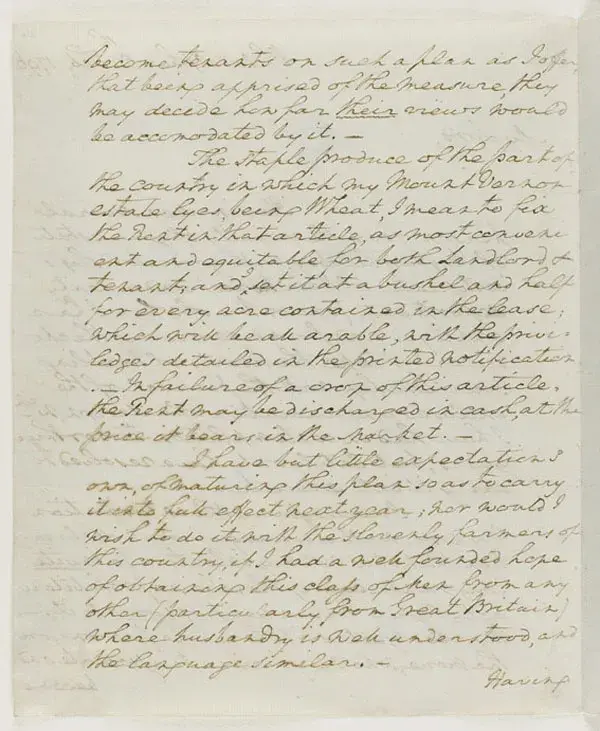 become tenants on such a plan as I offer,
that being apprised of the measure, they
may decide how far their views would
be accomodated by it. —
The staple produce of the part of
the country in which my Mount Vernon
estate lyes, being Wheat, I mean to fix
the Rent in that article, as most conveni
ent and equitable for both Landlord &
tenant; and set it at a bushel and half
for every acre contained in the lease;
which will be all arable, with the privi-
ledges detailed in the printed notification
. — In failure of a crop of this article,
the Rent may be discharged in cash, at the
price it bears in the market. —
I have but little expectation I
own, of maturing this plan so as to carry
it into full effect next year; nor would I
wish to do it with the slovenly farmers of
this country, if I had a well founded hope
of obtaining this class of Men from any
other (particularly from Great Britain)
where husbandry is well understood, and
the language similar. —
Having